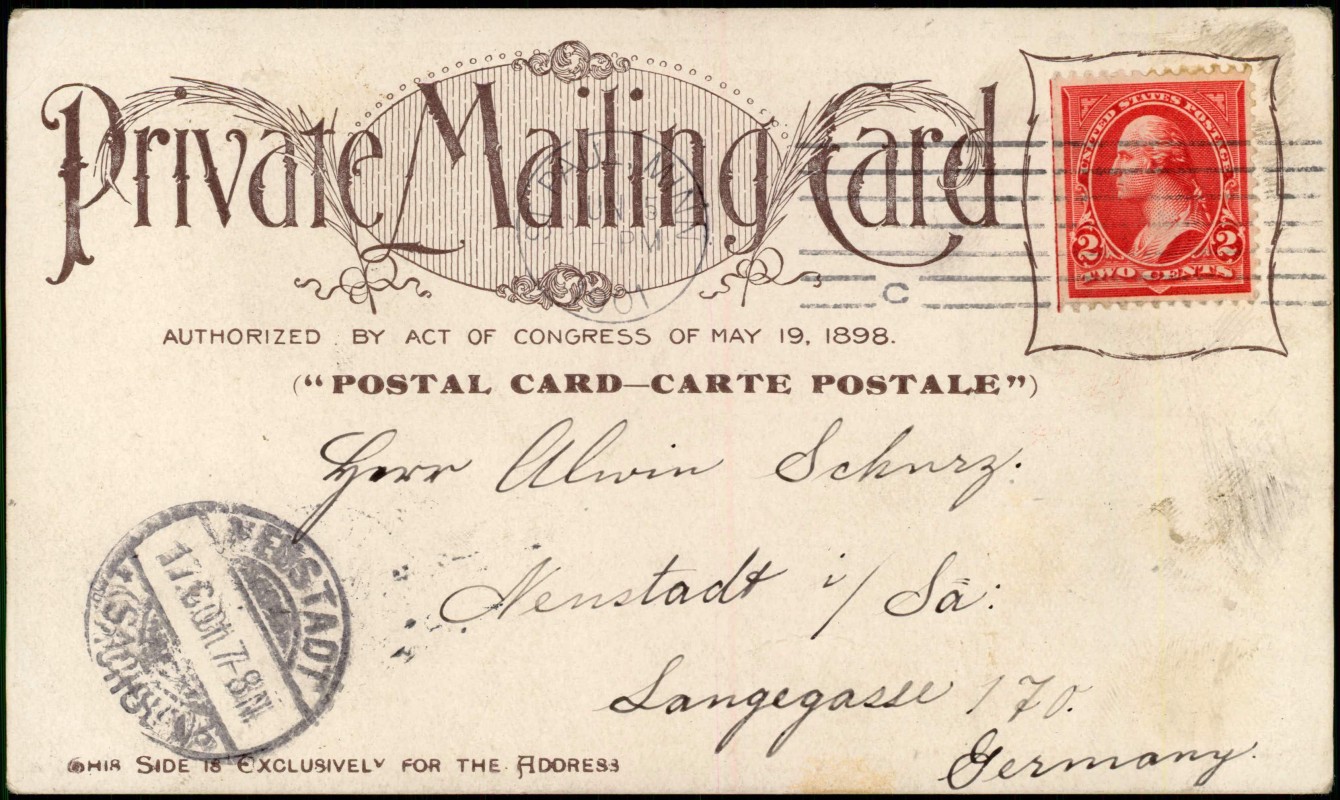 Private Mailing Card
UNITED STATES POSTAGE
2 2
TWO CENTS
PAUL, MINN
JUN 5
- PM
01
C
AUTHORIZED BY ACT OF CONGRESS OF MAY 19, 1898.
("POSTAL CARD—CARTE POSTALE")
Herr Alwin Schurz.
Neustadt i/Sa:
Langegasse 170.
Germany.
NEUSTADT
7-8N
SACHSEN
THIS SIDE IS EXCLUSIVELY FOR THE ADDRESS